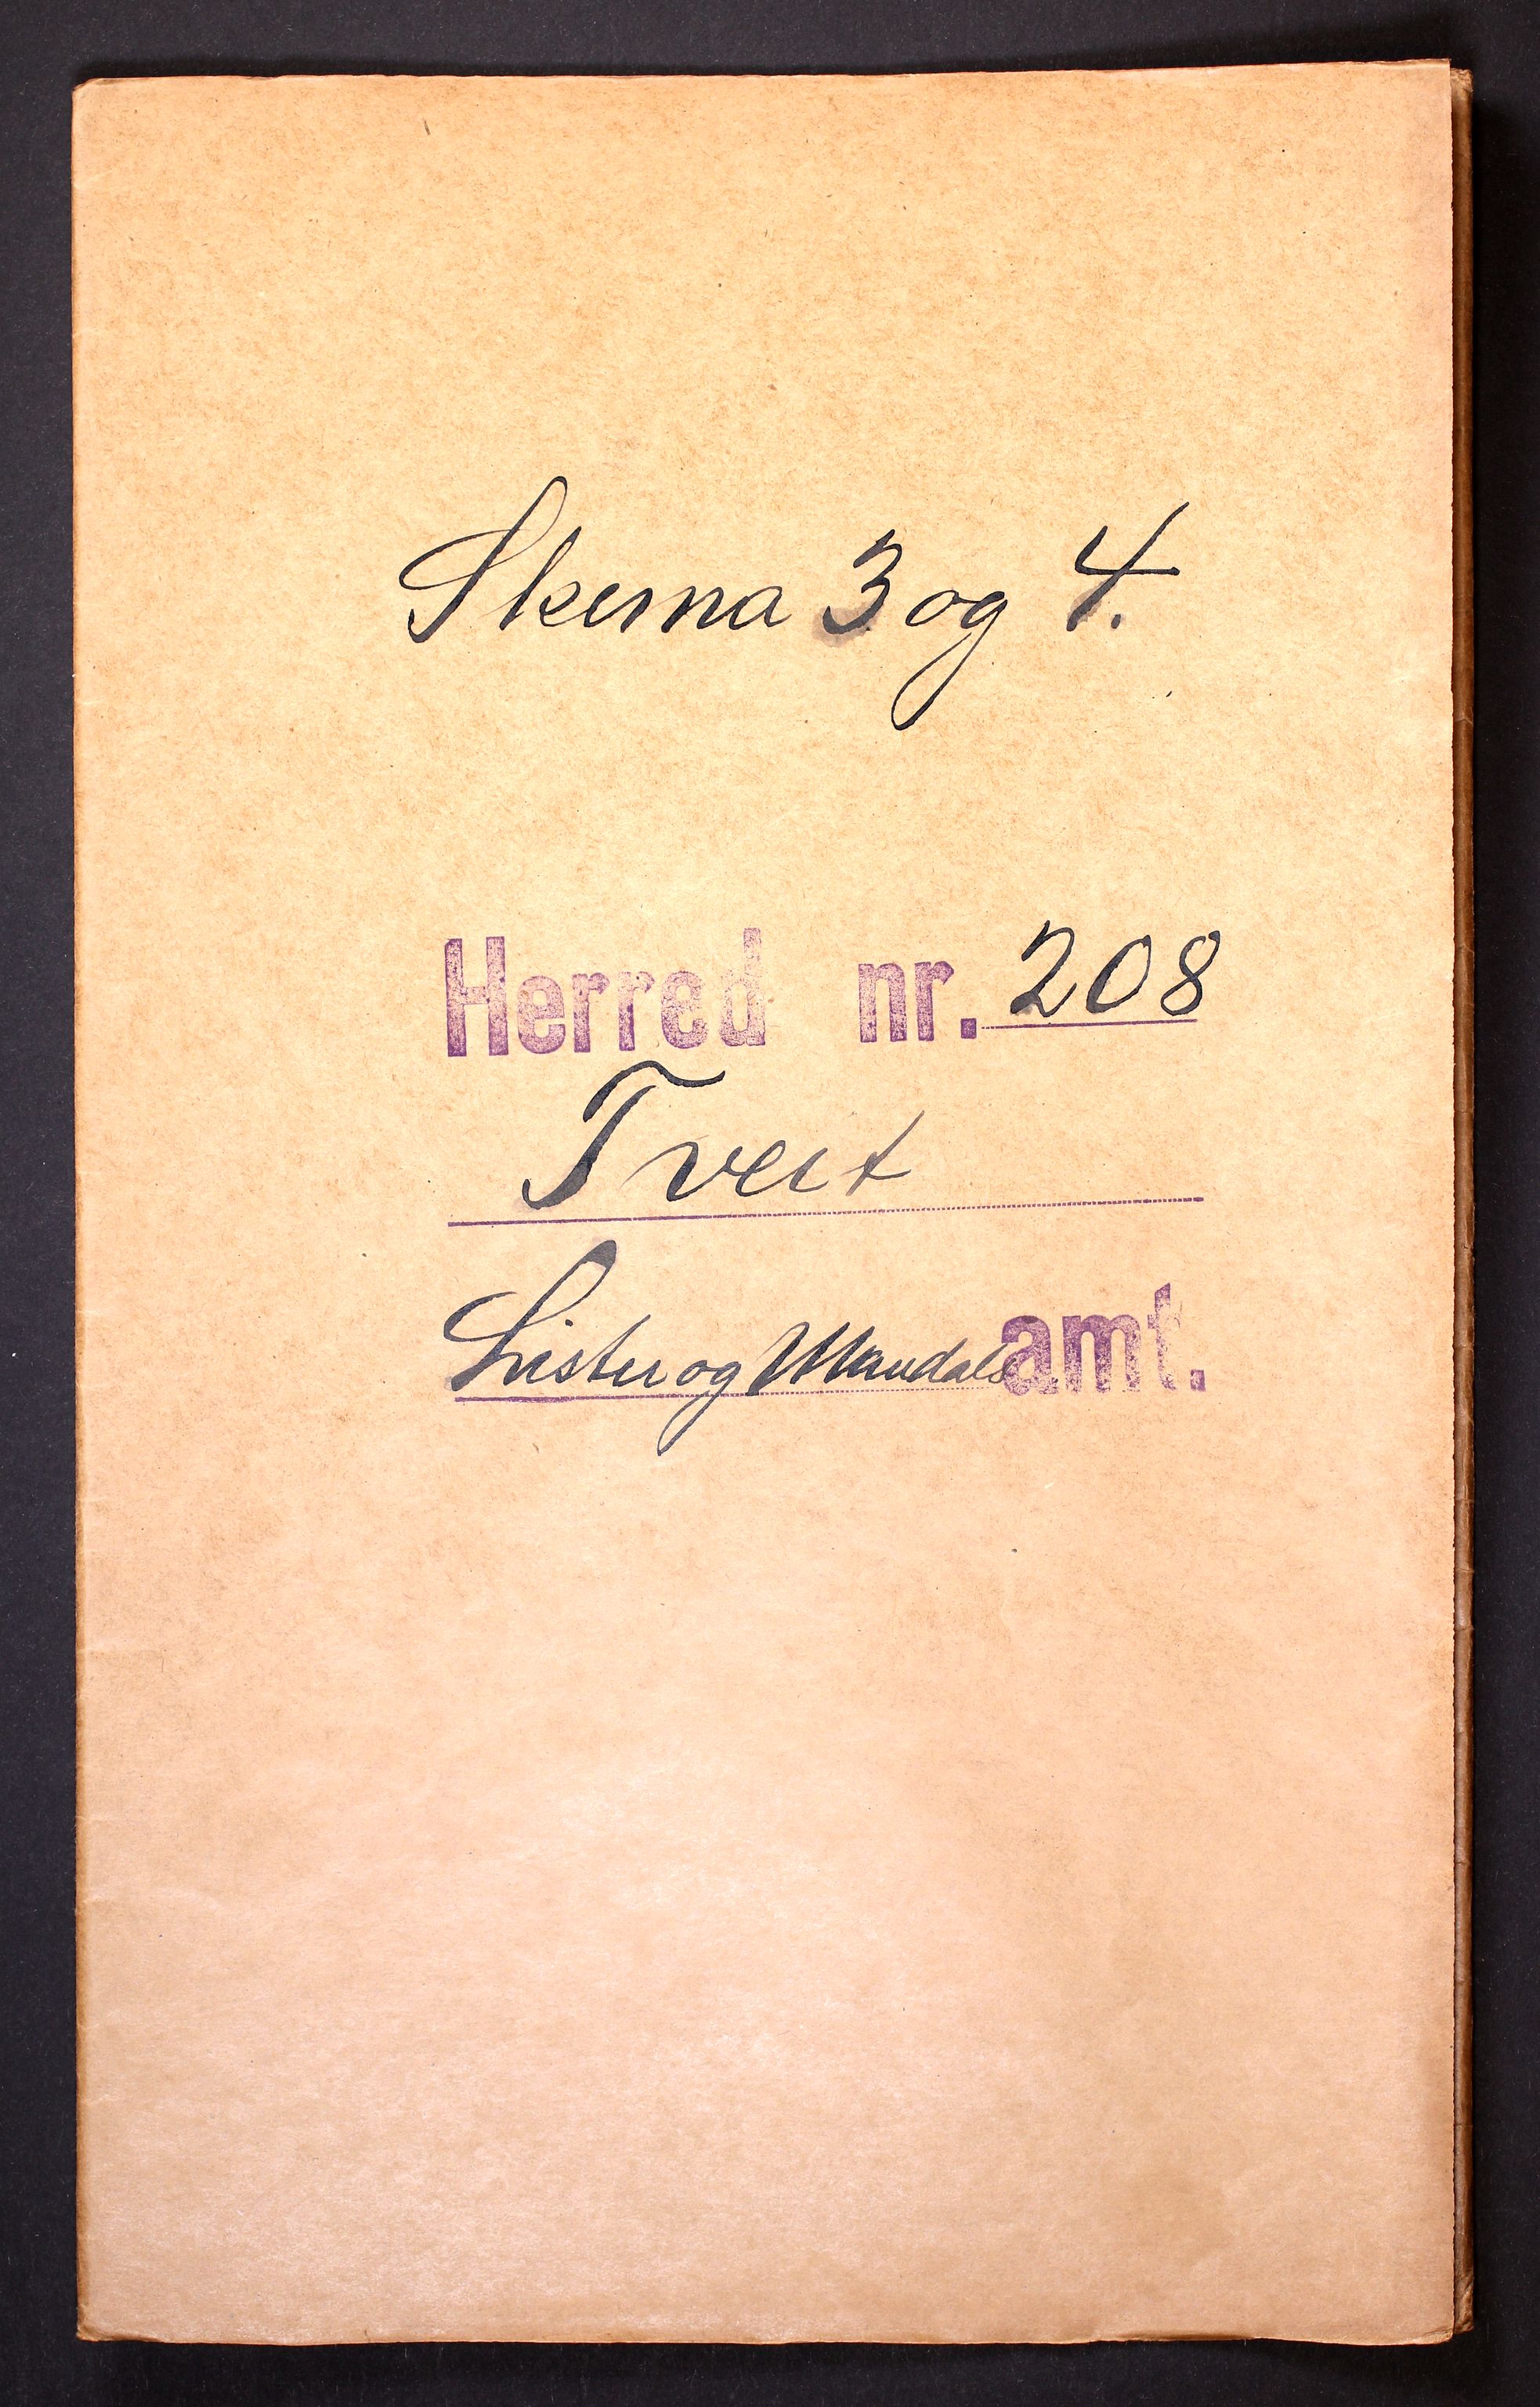 Skema 3 og 4.
Herred nr. 208
Tveit
Lister og Mandals amt.